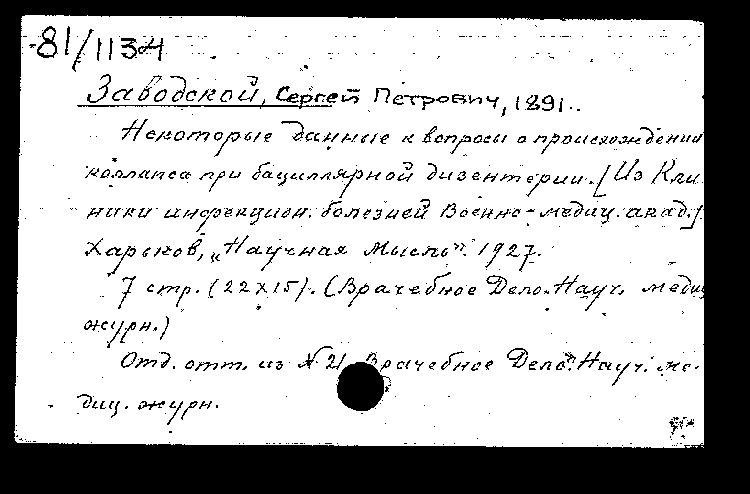 81/1134
Заводской, Сергей Петрович, 1891..
Некоторые данные к вопросу о происхождении
коллапса при бациллярной дизентерии. [Из Кли
ники инфекцион. болезней Военно-медиц. акад.]
Харьков, „Научная Мысль". 1927.
7 стр. (22х15). (Врачебное Дело. Науч. медиц
журн.)
Отд. отт. из № 21 „Врачебное Дело". Науч. ме-
диц. журн.